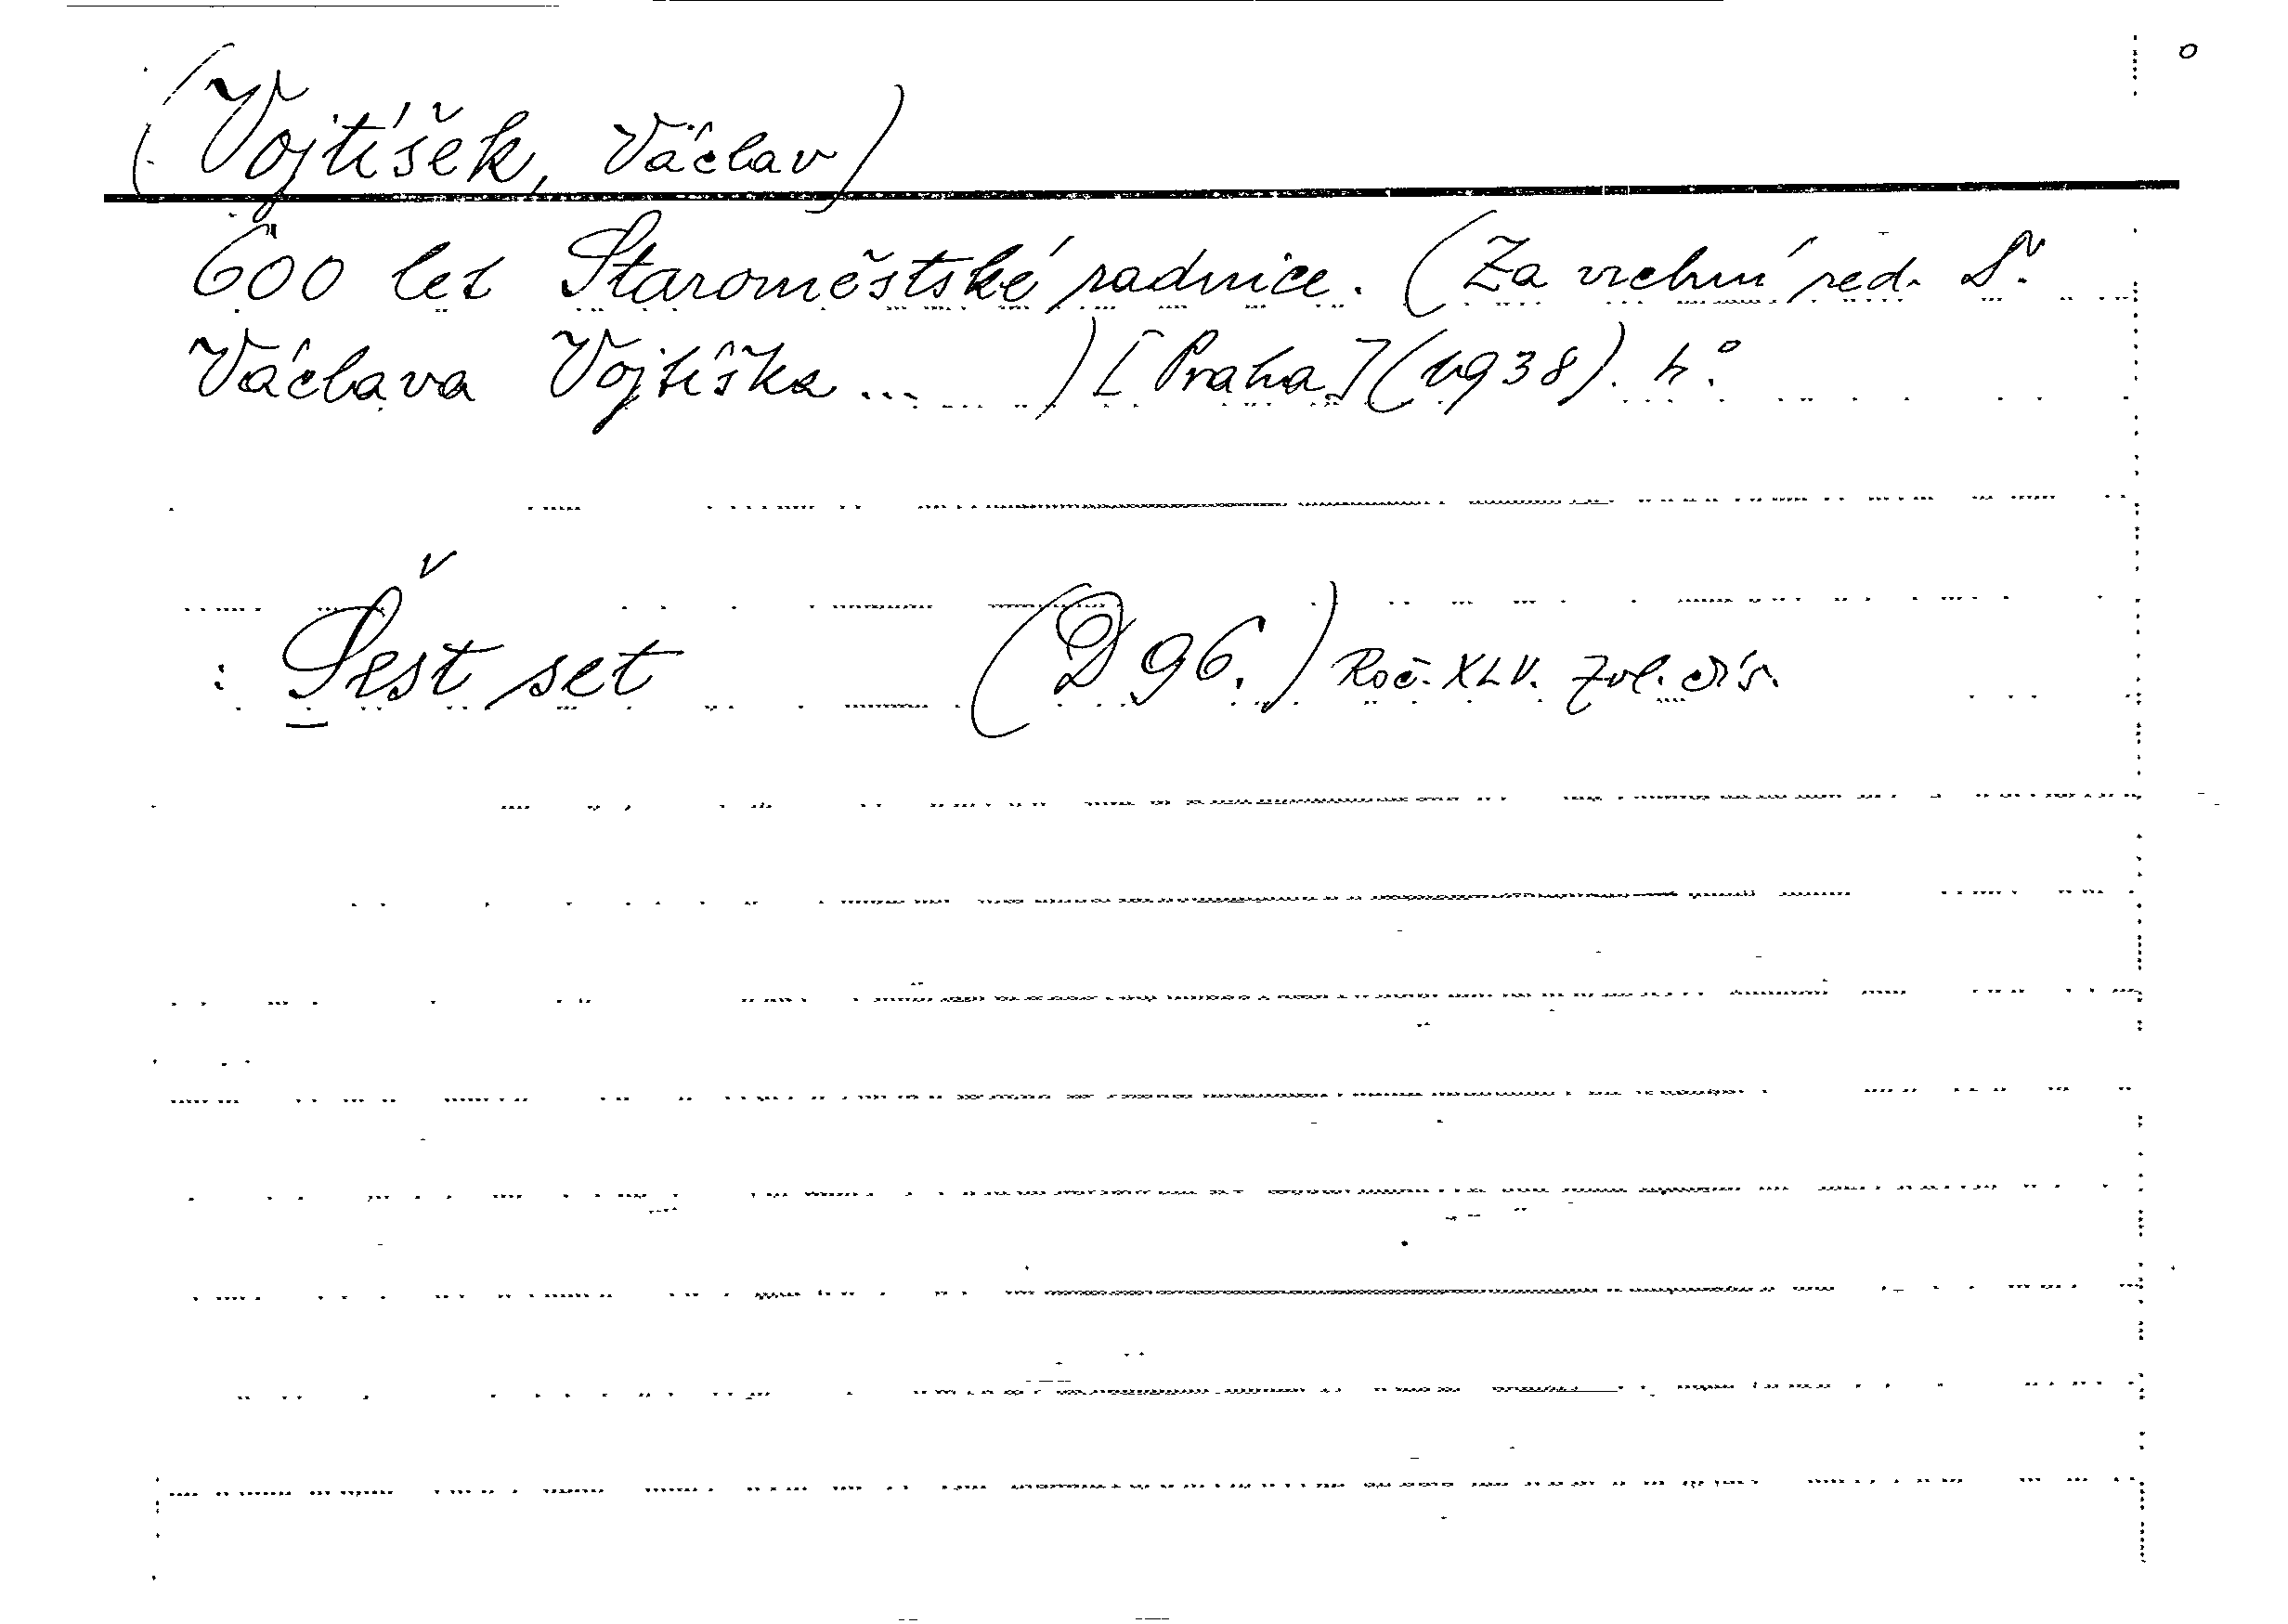 (Vojtíšek, Václav)
600 let Staroměstské radnice. (Za vrchní red. Dr.
Václava Vojtíška ... ) [Praha] (1938). 4°.
: Šest set (D 96.) Roč. XLV. Zvl. čís.